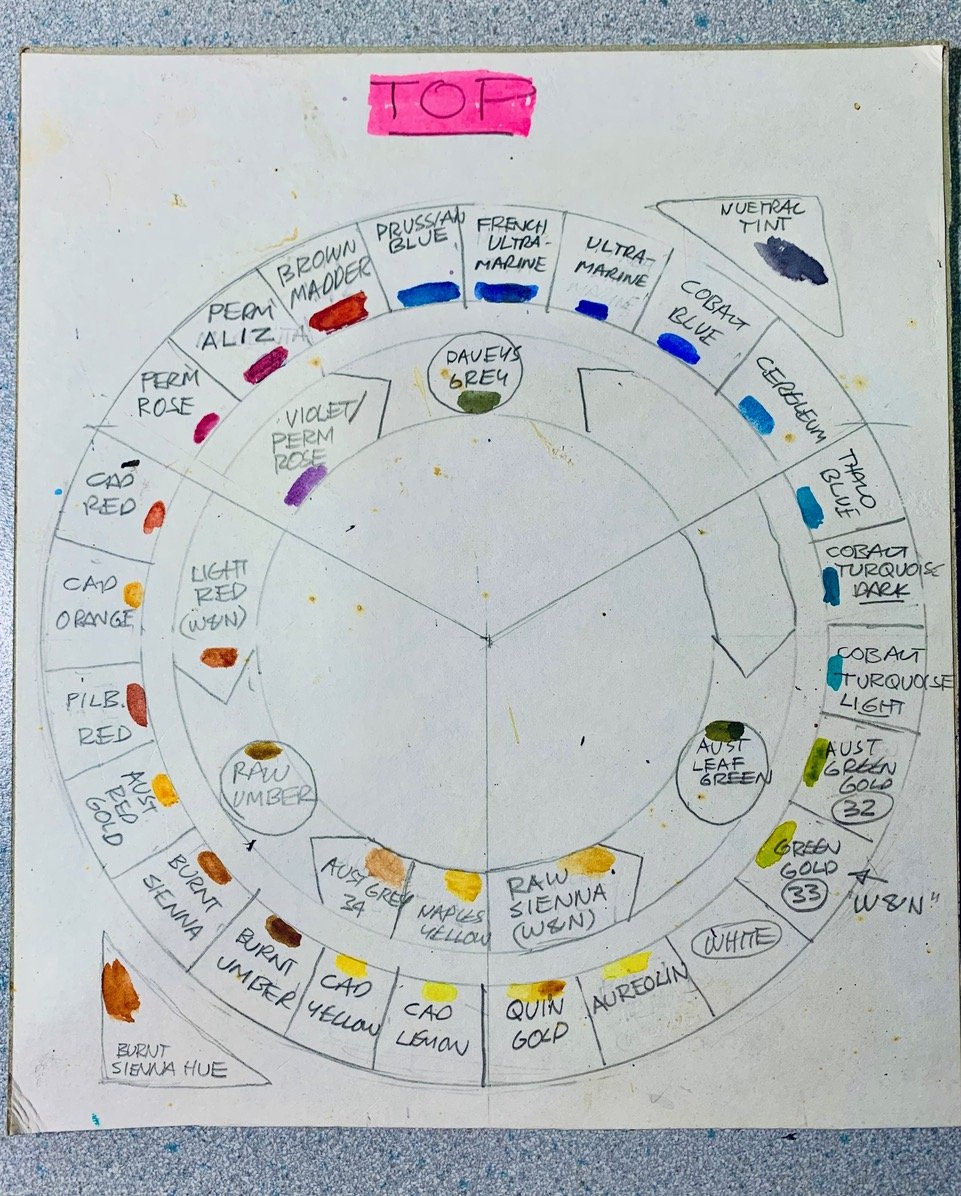 TOP
NUETRAL
TINT
PRUSSIAN
BLUE
FRENCH
ULTRA-
MARINE
ULTRA-
MARINE
COBALT
BLUE
CEREULEUM
THALO
BLUE
COBALT
TURQUOISE
DARK
COBALT
TURQUOISE
LIGHT
AUST
GREEN
GOLD
32
GREEN
GOLD
33
"W&N"
WHITE
AUREOLIN
QUIN
GOLD
CAD
LEMON
CAD
YELLOW
BURNT
UMBER
BURNT
SIENNA
AUST
RED
GOLD
PILB.
RED
CAD
ORANGE
CAD
RED
PERM
ROSE
PERM
ALIZ
BROWN
MADDER
DAVEYS
GREY
VIOLET/
PERM
ROSE
LIGHT
RED
(W&N)
RAW
UMBER
AUST GREY
34
NAPLES
YELLOW
RAW
SIENNA
(W&N)
AUST
LEAF
GREEN
BURNT
SIENNA HUE